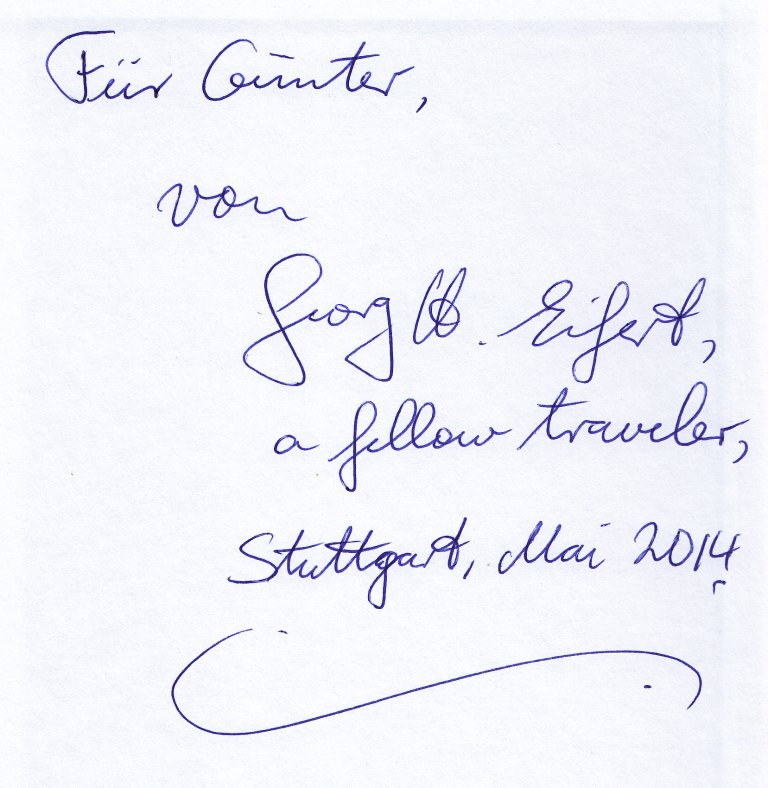 Für Günter,
von
Georg H. Eifert,
a fellow traveler,
Stuttgart, Mai 2014